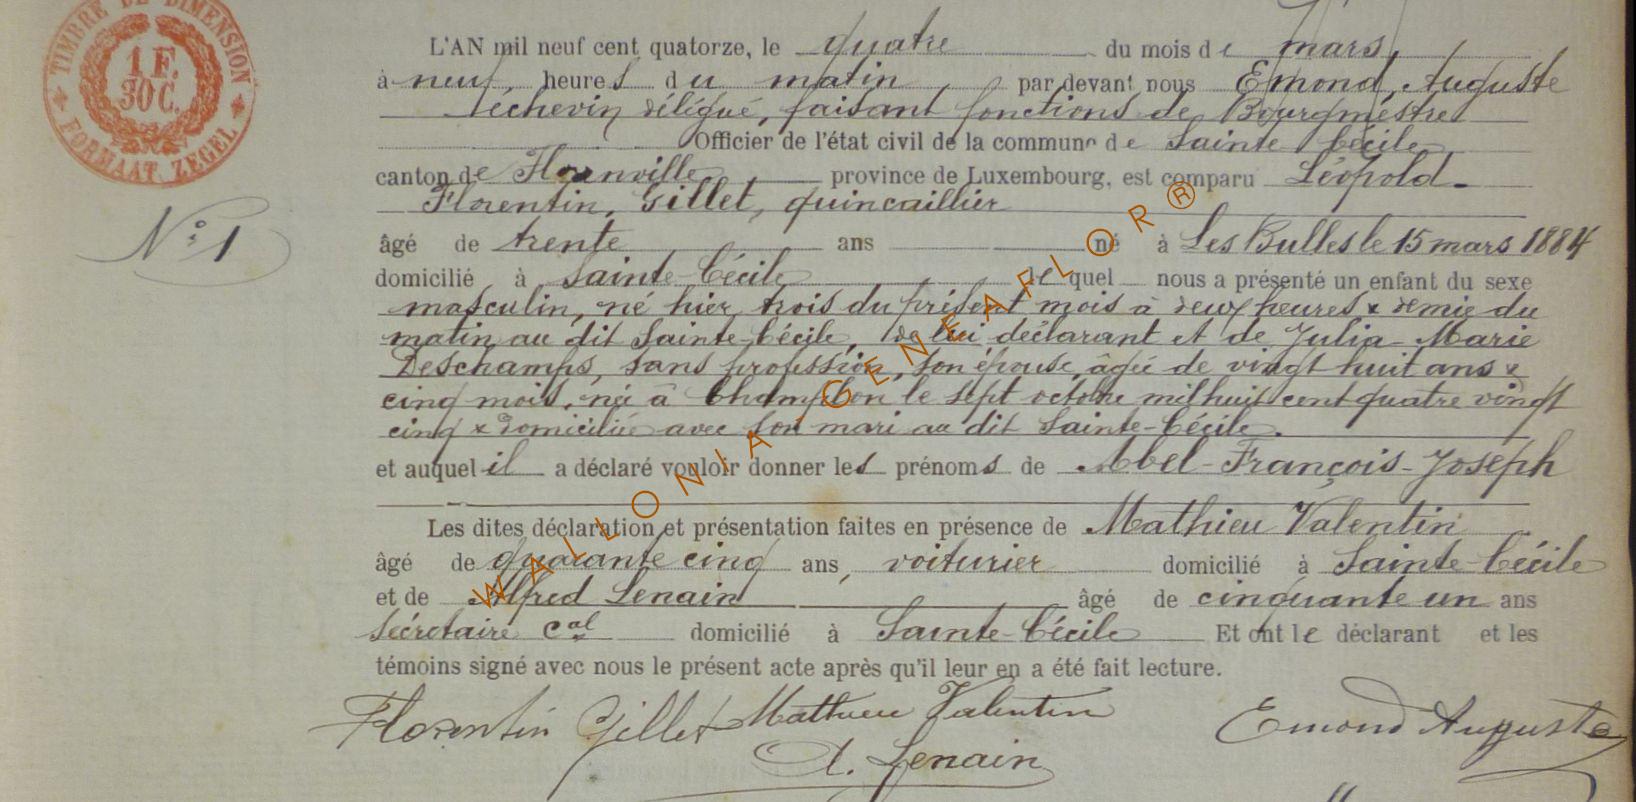 TIMBRE DE DIMENSION
1 F.
30 C.
FORMAAT ZEGEL
L'AN mil neuf cent quatorze, le quatre du mois de mars,
à neuf heures du matin par devant nous Emond, Auguste
échevin délégué, faisant fonctions de Bourgmestre
Officier de l'état civil de la commune de Sainte Cécile
canton de Florenville province de Luxembourg, est comparu Léopold-
Florentin, Gillet, quincaillier
N° 1
âgé de trente ans né à Les Bulles le 15 mars 1884
domicilié à Sainte-Cécile lequel nous a présenté un enfant du sexe
masculin, né hier, trois du présent mois à deux heures & demie du
matin au dit Sainte-Cécile, de lui déclarant et de Julia-Marie
Deschamps, sans profession, son épouse, âgée de vingt huit ans &
cinq mois, née à le sept octobre mil huit cent quatre vingt
cinq & domiciliée avec son mari au dit Sainte-Cécile.
et auquel il a déclaré vouloir donner les prénoms de Abel-François-Joseph
Les dites déclaration et présentation faites en présence de Mathieu Valentin
âgé de quarante cinq ans, voiturier domicilié à Sainte-Cécile
et de Alfred Lenain âgé de cinquante un ans
secrétaire cal domicilié à Sainte-Cécile Et ont le déclarant et les
témoins signé avec nous le présent acte après qu'il leur en a été fait lecture.
Florentin Gillet Mathieu Valentin Emond Auguste
A. Lenain
WALLONIA-GENEAFLOR®